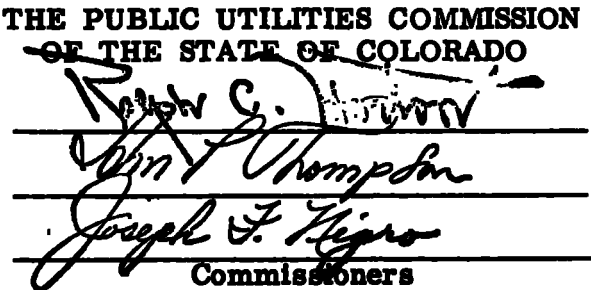 THE PUBLIC UTILITIES COMMISSION
OF THE STATE OF COLORADO
Ralph C. Horton
John P. Thompson
Joseph F. Nigro
Commissioners